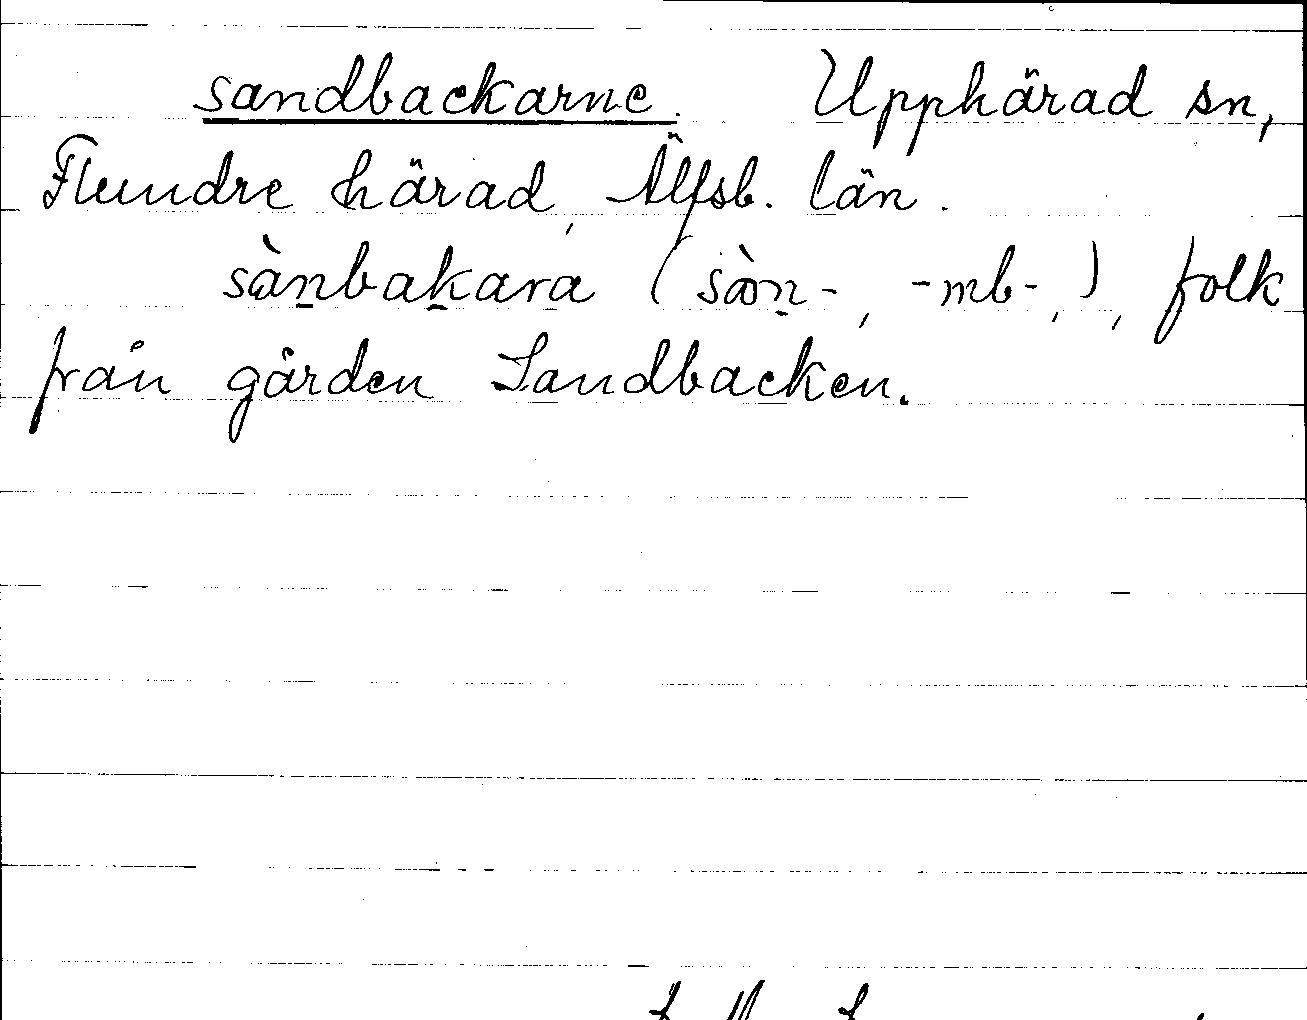 sandbackarne. Upphärad sn,
Flundre härad, Älfsb. län.
sànbakara (sòn-, -mb-,), folk
från gården Sandbacken.